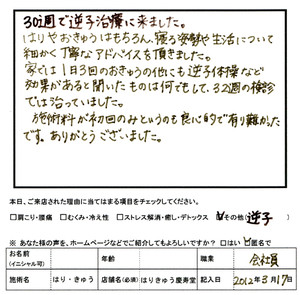 30週で逆子治療に来ました。
はりやおきゅうはもちろん、寝る姿勢や生活について
細かく丁寧なアドバイスを頂きました。
家では1日3回のおきゅうの他にも逆子体操など
効果があると聞いたものは何でもして、32週の検診
では治っていました。
施術料が初回のみというのも良心的で有り難かった
です。ありがとうございました。
本日、ご来店された理由に当てはまる項目をチェックしてください。
□肩こり・腰痛 □むくみ・冷え性 □ストレス解消・癒し・デトックス ☑その他(逆子)
※ あなた様の声を、ホームページなどでご紹介してもよろしいですか? □はい ☑匿名で
お名前 (イニシャル可) 年齢 職業 会社員
施術名 はり・きゅう 店舗名(必須) はりきゅう慶寿堂 記入日 2012年3月17日